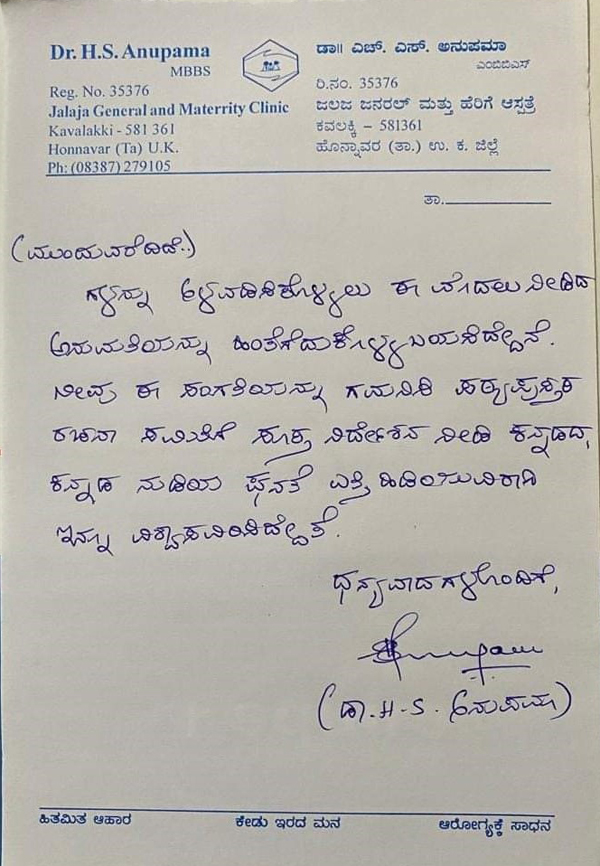 Dr. H.S. Anupama
MBBS
Reg. No. 35376
Jalaja General and Materrity Clinic
Kavalakki - 581 361
Honnavar (Ta) U.K.
Ph: (08387) 279105
ಡಾ॥ ಎಚ್. ಎಸ್. ಅನುಪಮಾ
ಎಂಬಿಬಿಎಸ್
ರಿ.ನಂ. 35376
ಜಲಜ ಜನರಲ್ ಮತ್ತು ಹೆರಿಗೆ ಆಸ್ಪತ್ರೆ
ಕವಲಕ್ಕಿ – 581361
ಹೊನ್ನಾವರ (ತಾ.) ಉ. ಕ. ಜಿಲ್ಲೆ
ತಾ.
(ಮುಂದುವರೆದಿದೆ..)
ಗಳನ್ನು ಅಳವಡಿಸಿಕೊಳ್ಳಲು ಈ ಮೊದಲು ನೀಡಿದ
ಅನುಮತಿಯನ್ನು ಹಿಂತೆಗೆದುಕೊಳ್ಳಬಯಸಿದ್ದೇನೆ.
ನೀವು ಈ ಸಂಗತಿಯನ್ನು ಗಮನಿಸಿ ಪಠ್ಯಪುಸ್ತಕ
ರಚನಾ ಸಮಿತಿಗೆ ಸೂಕ್ತ ನಿರ್ದೇಶನ ನೀಡಿ ಕನ್ನಡದ,
ಕನ್ನಡ ನುಡಿಯ ಘನತೆ ಎತ್ತಿ ಹಿಡಿಯುವಿರಾಗಿ
ಇನ್ನೂ ವಿಶ್ವಾಸವಿರಿಸಿದ್ದೇನೆ.
ಧನ್ಯವಾದಗಳೊಂದಿಗೆ,
(ಡಾ. H.S. ಅನುಪಮಾ)
ಹಿತಮಿತ ಆಹಾರ
ಕೇಡು ಇರದ ಮನ
ಆರೋಗ್ಯಕ್ಕೆ ಸಾಧನ